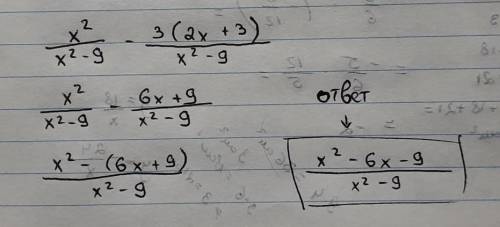 x²/(x²-9) - 3(2x+3)/(x²-9)
x²/(x²-9) - (6x+9)/(x²-9)
(x²-(6x+9))/(x²-9)
ответ
↓
(x²-6x-9)/(x²-9)